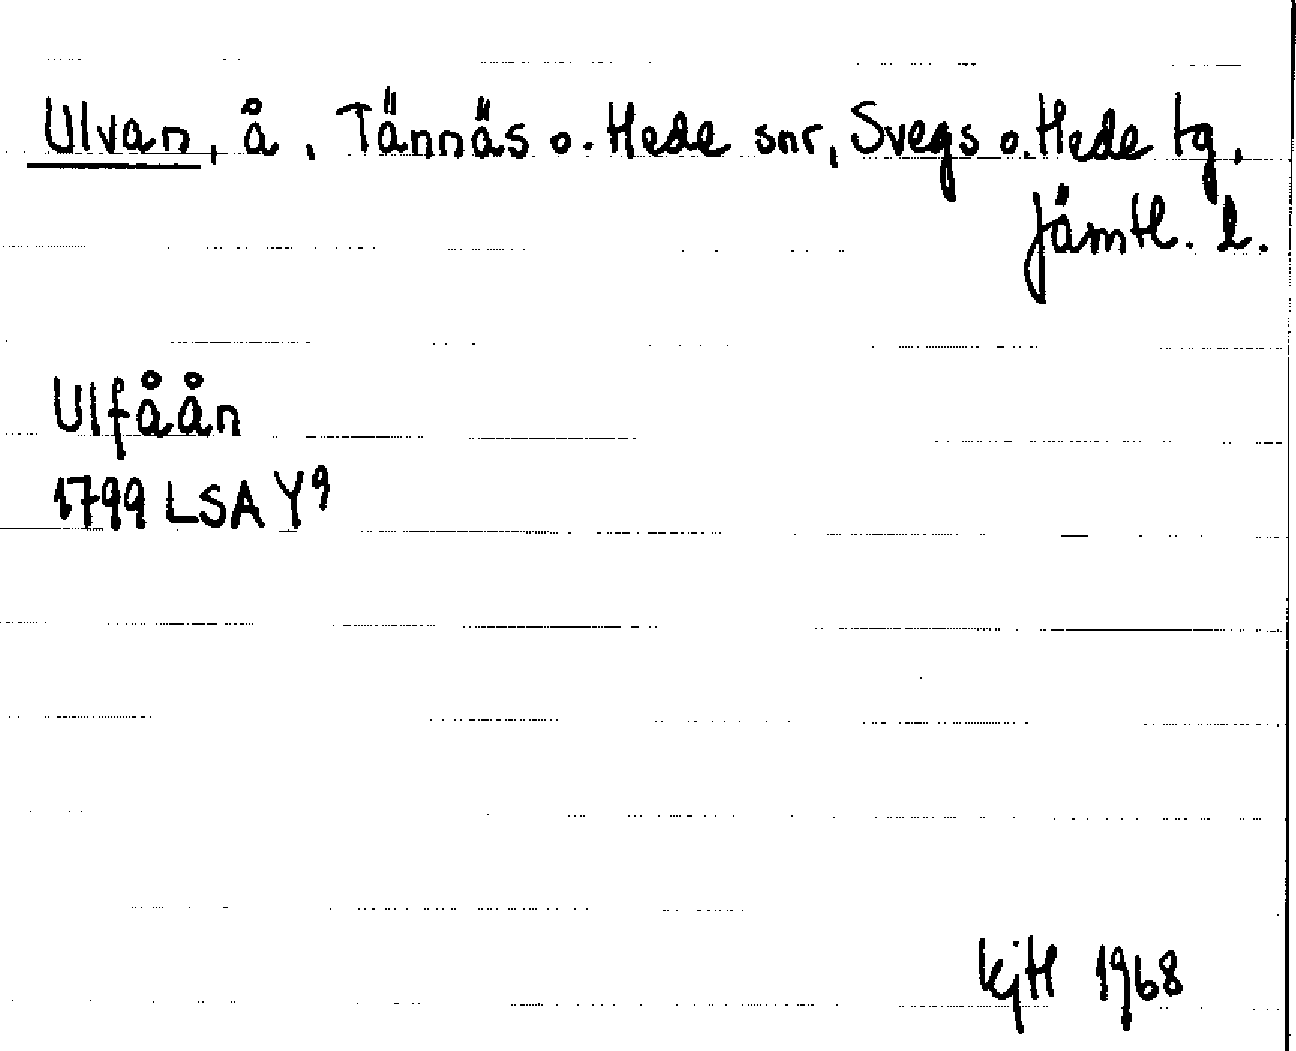 Ulvan, å, Tännäs o. Hede snr, Svegs o. Hede tg,
Jämtl. l.
Ulfåån
1799 LSA Y9
KjH 1968